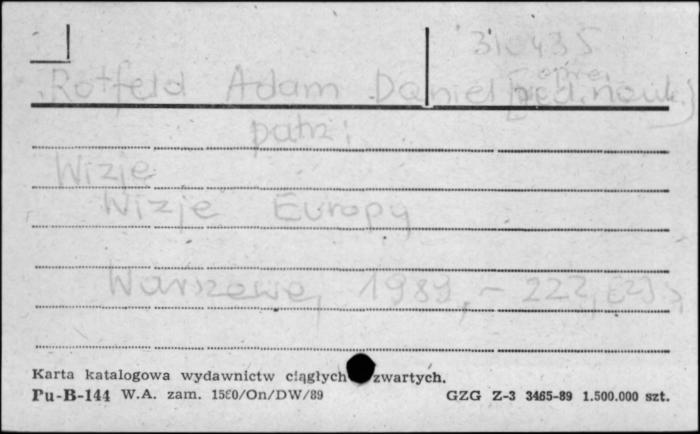 310435
Rotfeld Adam Daniel [oprac.
red. nauk.]
patrz:
Wizje
Wizje Europy
Warszawa, 1989, - 222, [2] s.
Karta katalogowa wydawnictw ciągłych zwartych.
Pu-B-144 W.A. zam. 1560/On/DW/89 GZG Z-3 3465-89 1.500.000 szt.